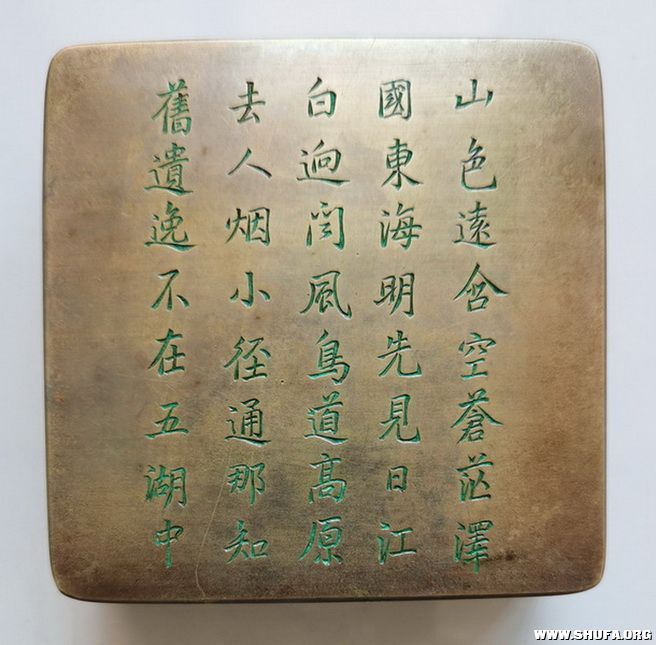 山色遠含空蒼茫澤
國東海明先見日江
白迥聞風鳥道高原
去人烟小徑通那知
舊遺逸不在五湖中
WWW.SHUFA.ORG